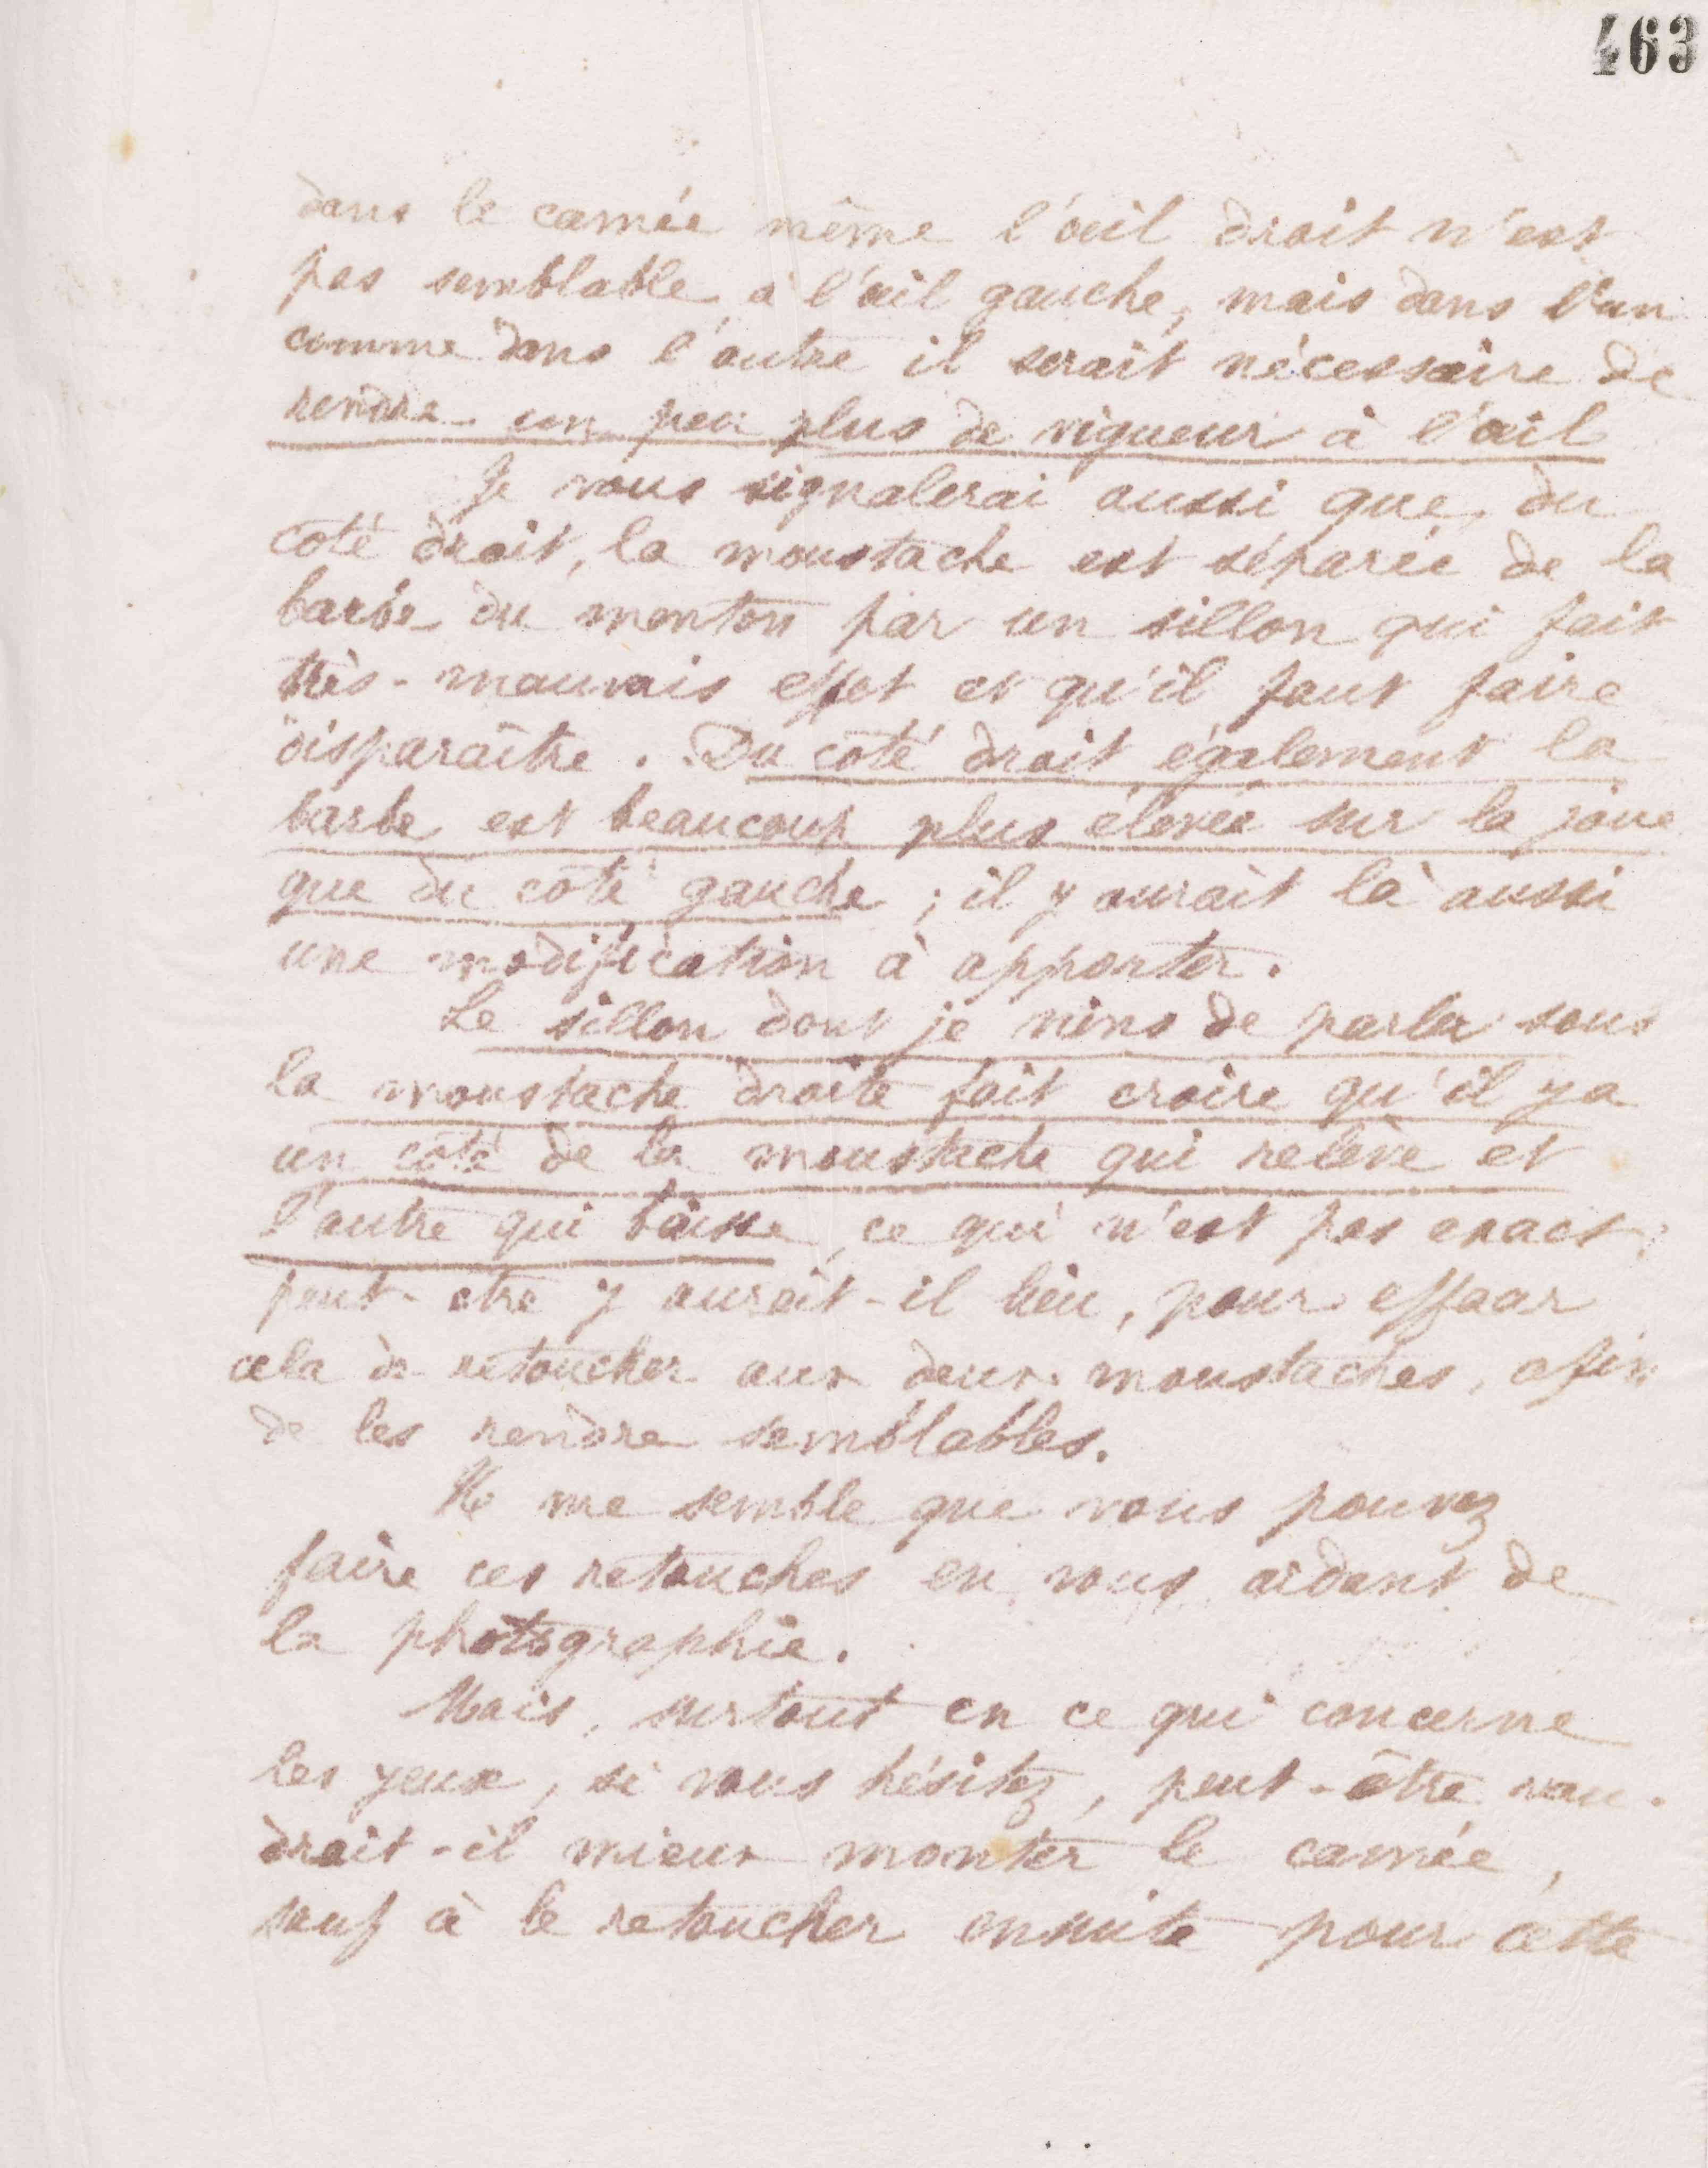 463
dans le camée même l'œil droit n'est
pas semblable à l'œil gauche, mais dans l'un
comme dans l'autre il serait nécessaire de
rendre un peu plus de vigueur à l'œil
Je vous signalerai aussi que, du
coté droit, la moustache est séparée de la
barbe du menton par un sillon qui fait
très-mauvais effet et qu'il faut faire
disparaître. Du coté droit également la
barbe est beaucoup plus élevée sur la joue
que du coté gauche ; il y aurait là aussi
une modification à apporter.
Le sillon dont je viens de parler sous
la moustache droite fait croire qu'il y a
un coté de la moustache qui relève et
l'autre qui baisse, ce qui n'est pas exact ;
peut-etre y aurait-il lieu, pour effacer
cela de retoucher aux deux moustaches, afin
de les rendre semblables.
Il me semble que vous pouvez
faire ces retouches en vous aidant de
la photographie.
Mais, surtout en ce qui concerne
les yeux, si vous hésitez, peut-être vau-
drait-il mieux monter le camée,
sauf à le retoucher ensuite pour cette